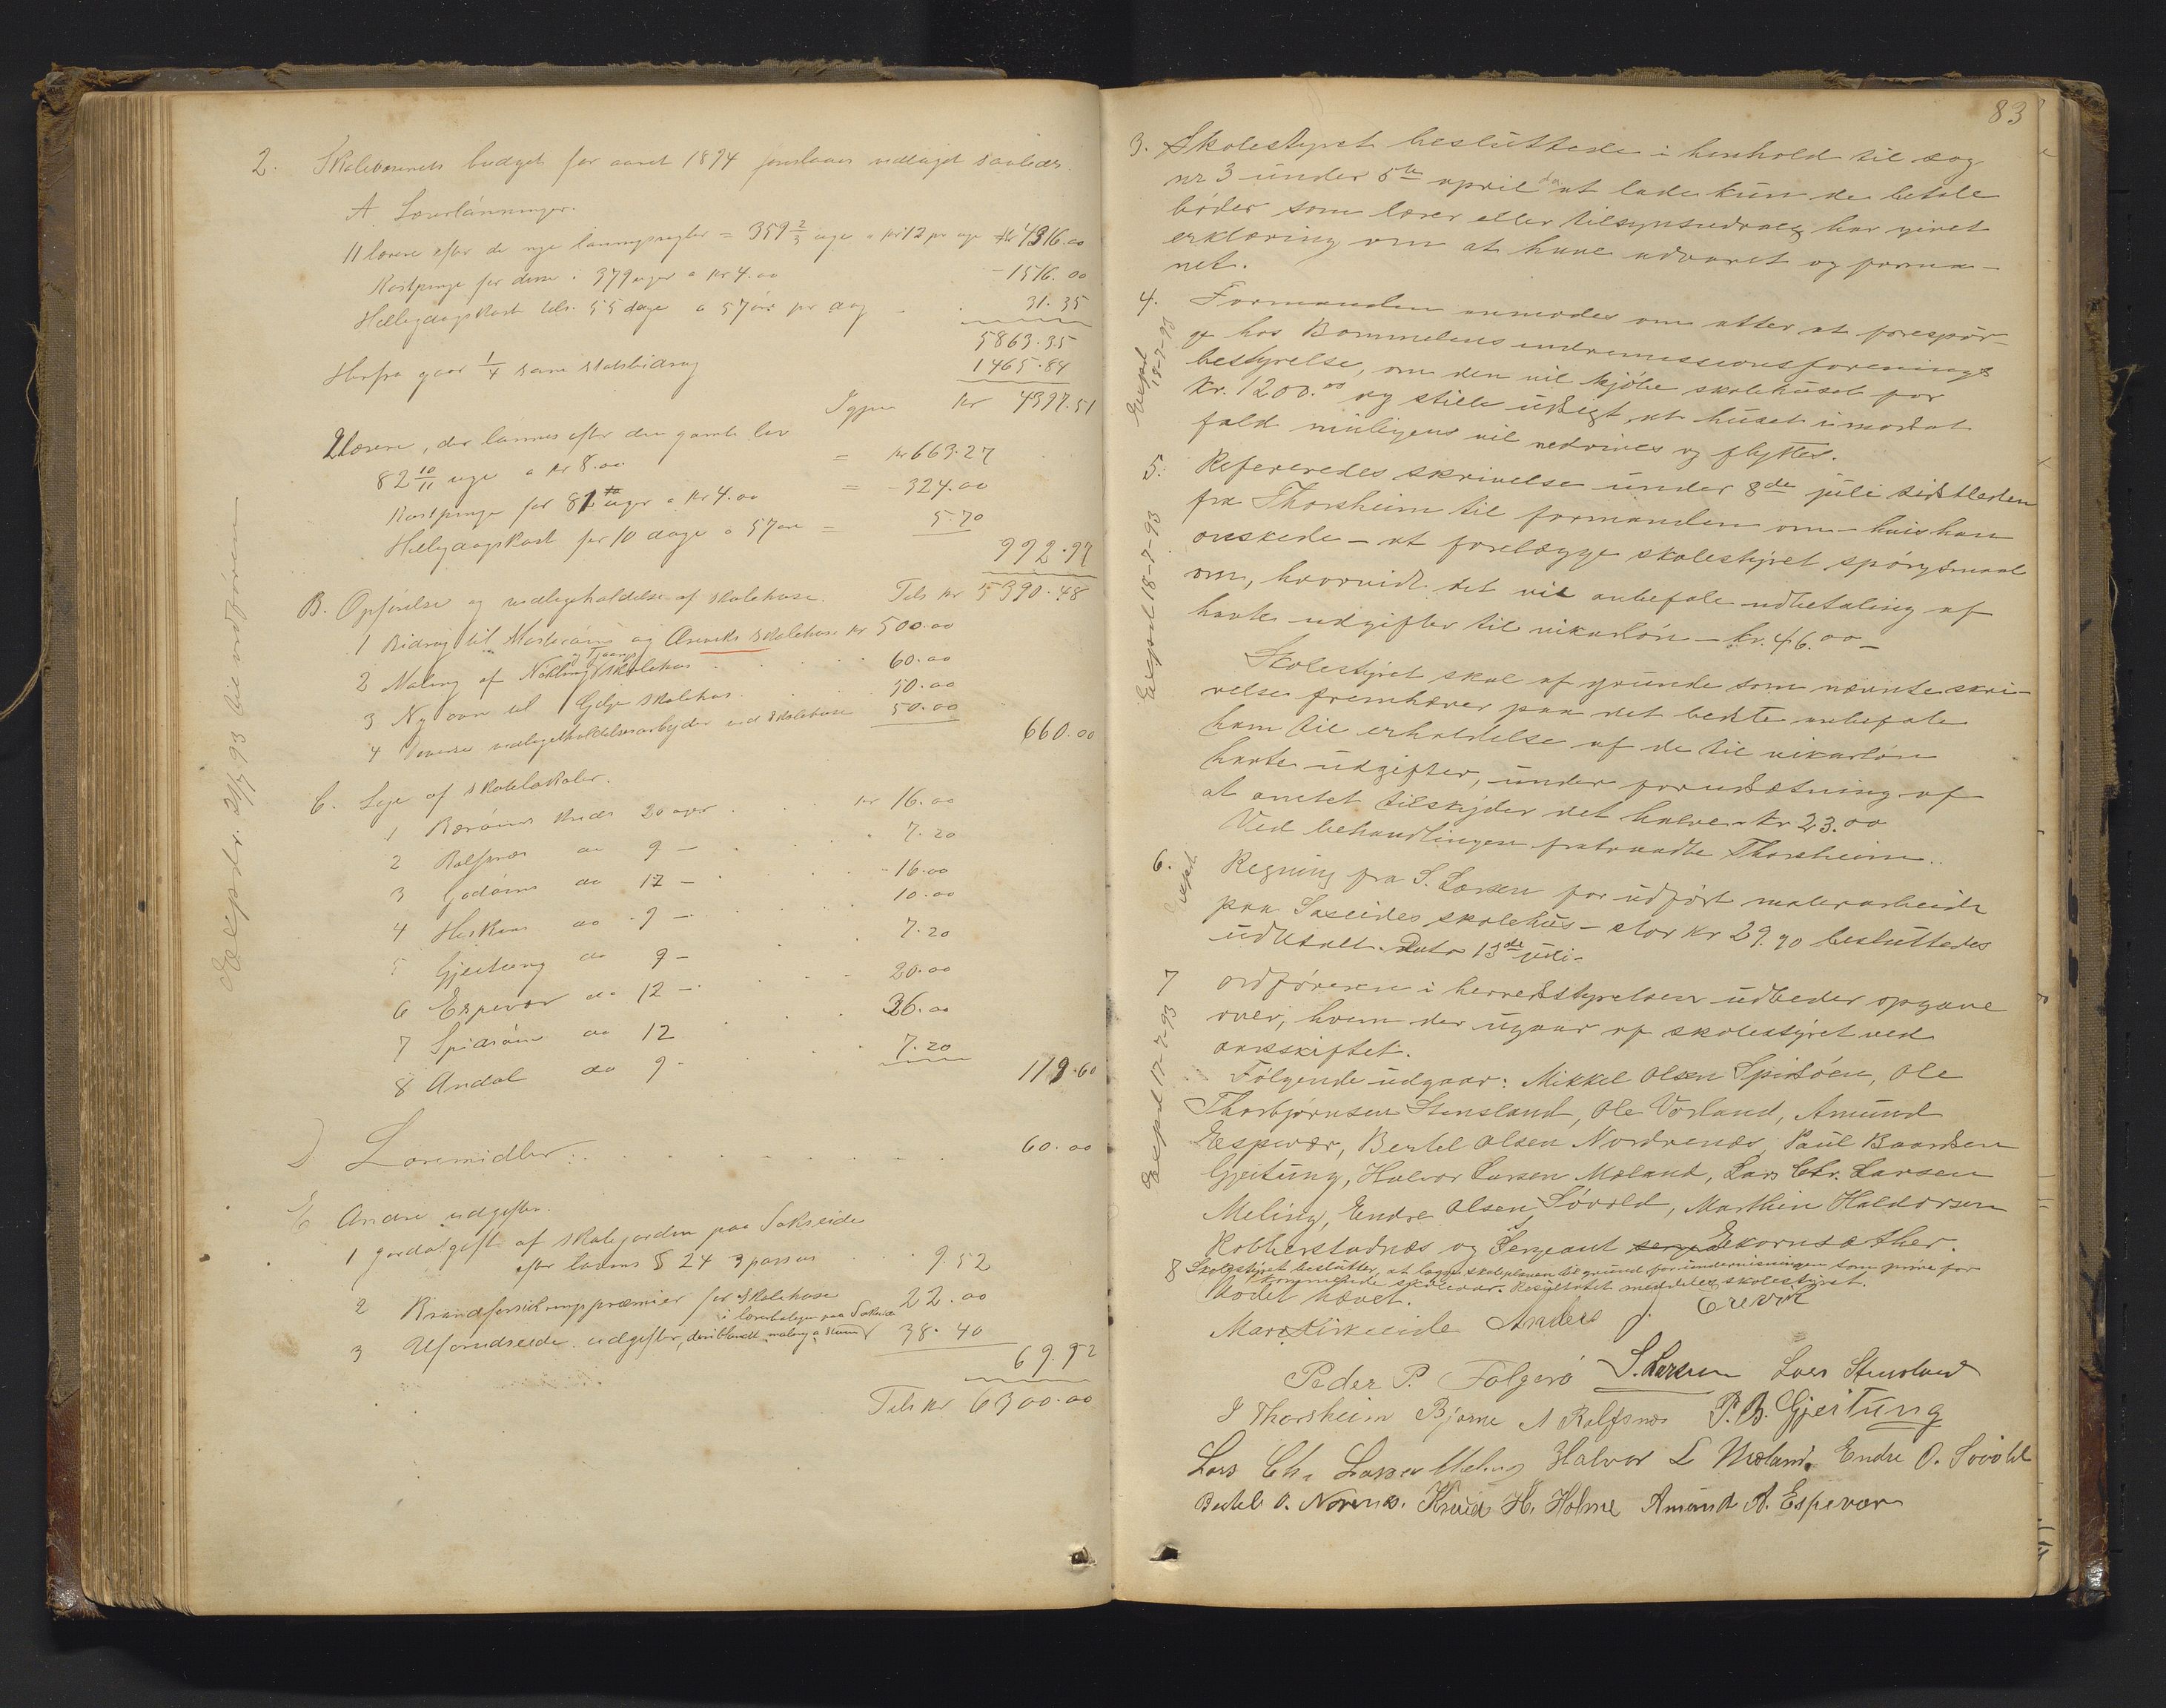 2. Skolevæsenets budget for aaret 1894 foreslaaes vedtaget saaledes.
A Lærerlønninger.
11 lærere efter de nye lønningsregler = 359 2/3 uge a kr 12 pr uge kr 4316.00
Kostpenge for disse i 379 uger a kr 4.00 - 1516.00
Helligdagskost tils. 55 dage a 57 øre pr dag 31.35
5863.35
Herfra gaar 1/4 som statsbidrag 1465.84
Igjen kr 4397.51
2 lærere, der lønnes efter den gamle lov
82 10/11 uge a kr 8.00 = kr 663.27
Kostpenge for 81 uger a kr 4.00 = - 324.00
Helligdagskost for 10 dage a 57 øre = 5.70
992.97
Tils kr 5390.48
B. Opførelse og vedligeholdelse af skolehuse.
1 Bidrag til og skolehuse kr 500.00
2 Maling af Nøkling og skolehus 60.00
3 Ny ovn til skolehus 50.00
4 Diverse vedligeholdelsesarbeider ved skolehuse 50.00
660.00
C. Leje af skolelokaler.
1 Børøens kreds 20 uger kr 16.00
2 Rolfsnes do 9 - 7.20
3 Godøens do 12 - 16.00
4 Hiskens do 9 - 10.00
5 Gjeitung do 9 - 7.20
6 Espevær do 12 - 20.00
7 Spidsøen do 12 36.00
8 Andal do 9 - 7.20
119.60
D Læremidler: 60.00
E Andre udgifter.
1 Jordafgift af skolejorden paa Sakseide
efter lovens § 24 3 passus 9.52
2 Brandforsikringspræmier for skolehuse 22.00
i lærerboligen paa Sakseide
3 Uforudseede udgifter, deriblandt maling a 38.40
69.92
Tils kr 6300.00
Exepdr. 21/7 93 til ordføreren
83
3. Skolestyret besluttede i henhold til sag
nr 3 under 5te april at lade kun de betale
bøder som lærer eller tilsynsudvalg har givet
erklæring om at have advaret og forma-
net.
4. Formanden anmodes om atter at forespør-
ge hos Bømmelens indremissionsforenings
bestyrelse, om den vil kjøbe skolehuset for
kr. 1200.00 og stille udsigt, at huset i modsat
fald muligens vil nedrives og flyttes.
Exepd 18-7-93
5. Refereredes skrivelse under 8de juli sidstleden
fra Thorsheim til formanden om - hvis han
ønskede - at forelægge skolestyret spørgsmaal
om, hvorvidt det vil anbefale udbetaling af
havte udgifter til vikarløn - kr. 46.00 -
Exepd 18-7-93
Skolestyret skal af grunde som nævnte skri-
velse fremhæver paa det bedste anbefale
ham til erholdelse af de til vikarløn
havte udgifter, under forudsætning af
at amtet tilskyder det halve - kr 23.00
Ved behandlingen fratraadte Thorsheim.
6. Regning fra S. Larsen for udført malerarbeide
paa Sakseides skolehus - stor kr 29.90 besluttedes
udbetalt. Dato 13de juli.
Exepd
7 Ordføreren i herredsstyrelsen udbeder opgave
over, hvem der udgaar af skolestyret ved
aarsskiftet.
Exepd 17-7-93
Følgende udgaar: Mikkel Olsen Spidsøen, Ole
Thorbjørnsen Stensland, Ole Vorland, Amund
Espevær, Bertel Olsen Nordrenæs, Paul Baardsen
Gjeitung, Halvor Larsen Mæland, Lars Chr. Larsen
Meling, Endre Olsen Løvold, Marthin Haldorsen
Robberstadnæs og Sergeant Ekornsæther.
8 Skolestyret beslutter, at lægge skolplanen til grund for undervisningen som prøve for
kommende skoleaar. Resultatet meddeles skolestyret.
Mødet hævet.
Mars Kirkeeide Anders J. Erevik
Peder P. Folgerø S. Larsen Lars Stensland
I Thorsheim Bjarne A Rolfsnes P. B. Gjeitung
Lars Ch. Larsen Meling Halvor L Mæland. Endre O. Løvold
Bertel O. Nornes. Knud H. Holme Amund A. Espevær